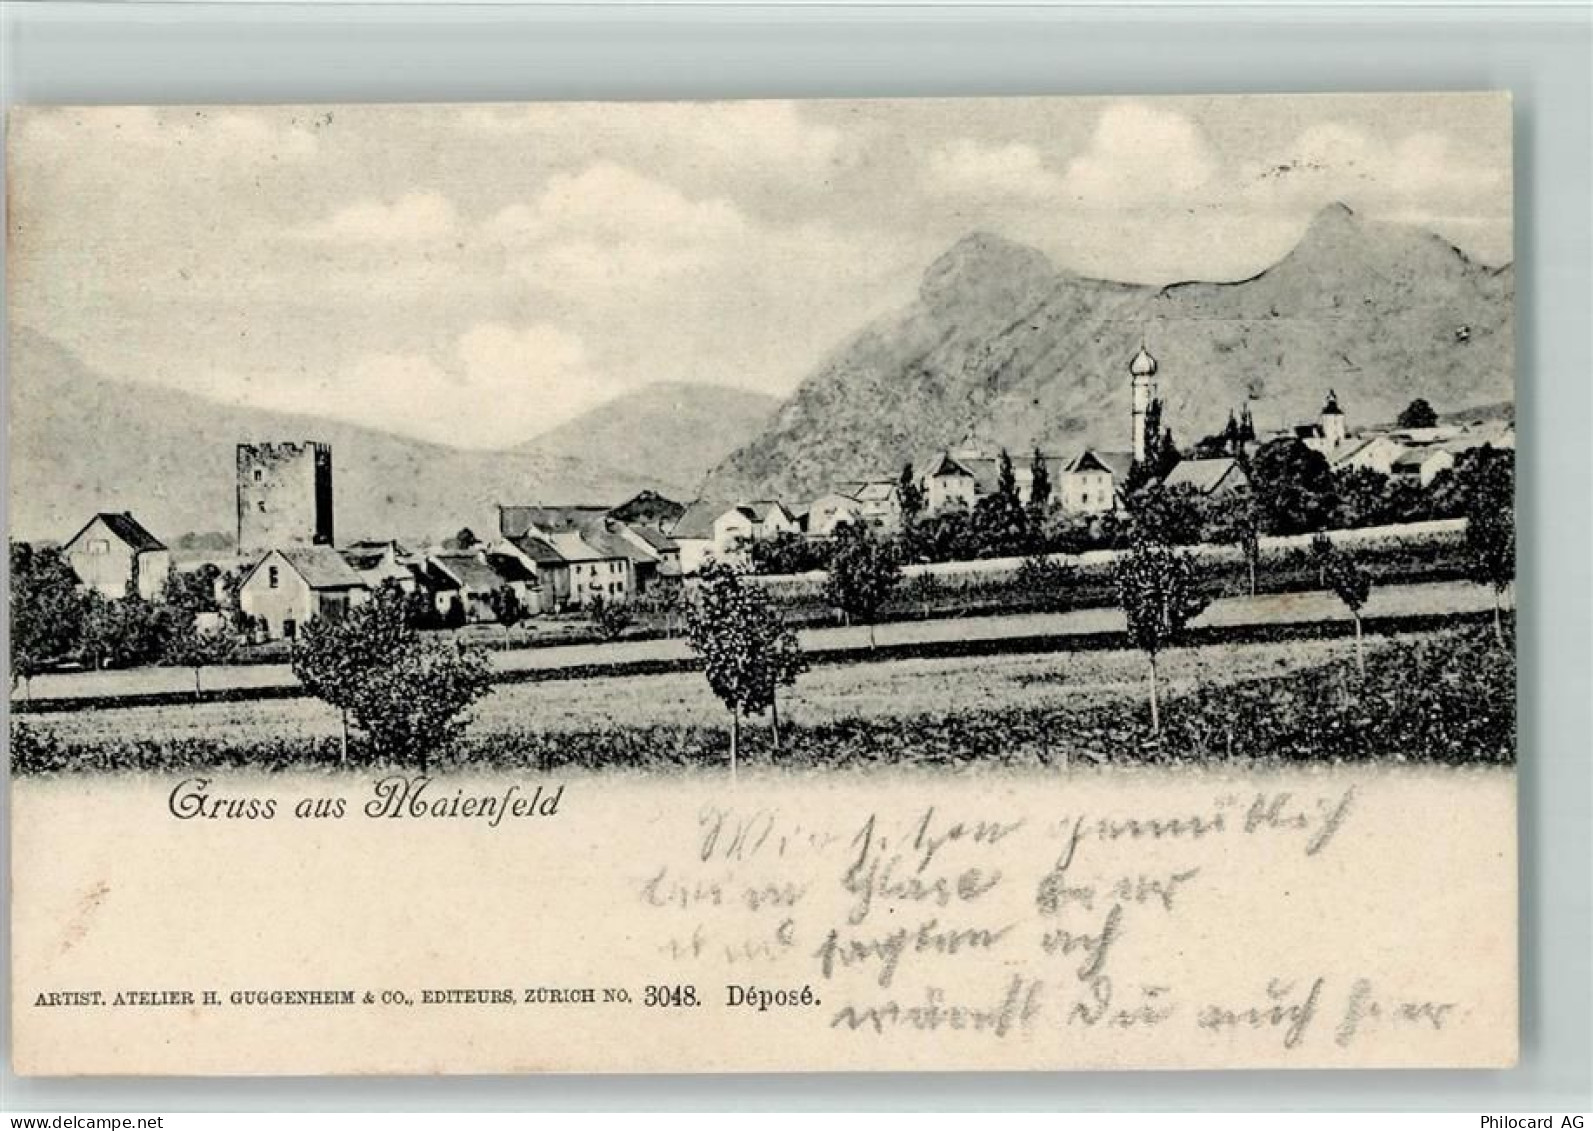 Gruss aus Maienfeld
Wir sitzen gemütlich
beim Glase Bier
und sagten ach
wärest Du auch hier
ARTIST. ATELIER H. GUGGENHEIM & CO., EDITEURS, ZÜRICH NO. 3048. Déposé.
www.delcampe.net
Philocard AG